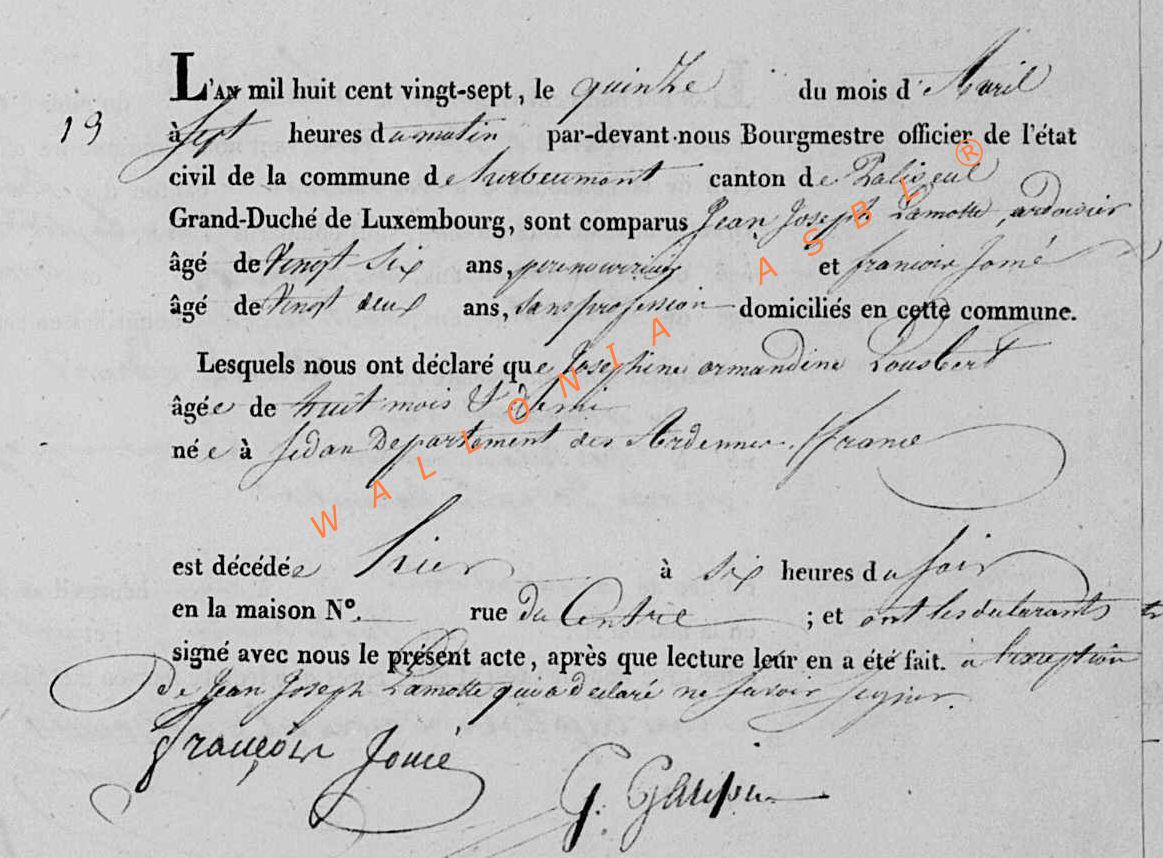 L'AN mil huit cent vingt-sept, le quinze du mois d'Avril
19 à Sept heures du matin par-devant nous Bourgmestre officier de l'état
civil de la commune de herbeumont canton de Paliseul
Grand-Duché de Luxembourg, sont comparus Jean Joseph Lamotte, ardoisier
âgé de Vingt Six ans, pere nourricier et francois Jomé
âgé de Vingt deux ans, sans profession domiciliés en cette commune.
Lesquels nous ont déclaré que Josephine ormandine Lousbert
âgée de huit mois & demi
née à Sedan Departement des Ardennes. france
est décédée hier à six heures du soir
en la maison N°. rue du Centre ; et ont les declarants
signé avec nous le présent acte, après que lecture leur en a été fait. a l'exception
de Jean Joseph Lamotte qui a declaré ne savoir signer.
françois Jomé
G.
WALLONIA ASBL ®